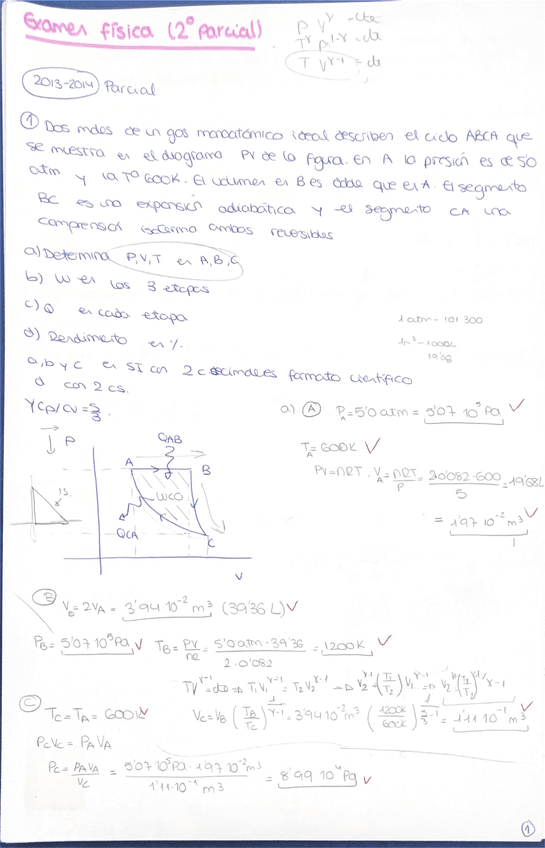 Examen física (2º Parcial)
P V^γ = cte
T^γ P^1-γ = cte
T V^γ-1 = cte
2013-2014 Parcial
① Dos moles de un gas monoatómico ideal describen el ciclo ABCA que
se muestra en el diagrama PV de la figura. En A la presión es de 5'0
atm y la Tª 600K. El volumen en B es doble que el A. El segmento
BC es una expansión adiabática y el segmento CA una
compresión isoterma ambos reversibles
a) Determina P, V, T en A, B, C
b) W en las 3 etapas
c) Q en cada etapa
d) Rendimiento en %
1 atm - 101 300
1m³ - 1000L
a, b y c en SI con 2 decimales formato científico
d con 2 cs.
γ Cp/Cv = 5/3
a) Ⓐ P_A = 5'0 atm = 5'07 10⁵ Pa ✓
T_A = 600K ✓
PV = nRT · V_A = nRT/P = 2·0'082·600/5 = 19'68L
= 1'97 10⁻² m³ ✓
P
QAB
A
B
WCO
QCA
C
V
Ⓑ V_B = 2V_A = 3'94·10⁻² m³ (39'36 L) ✓
P_B = 5'07 10⁵ Pa ✓ T_B = PV/nR = 5'0 atm · 39'36/2·0'082 = 1200K ✓
TV^γ-1 = cte ⇒ T₁V₁^γ-1 = T₂V₂^γ-1 → V₂^γ-1 = (T₁/T₂) V₁^γ-1 ⇒ V₂ = V₁(T₁/T₂)^1/γ-1
Ⓒ T_C = T_A = 600K ✓ V_C = V_B (T_B/T_C)^1/γ-1 = 3'94·10⁻² m³ (1200K/600K)^1/(5/3-1) = 1'11 10⁻¹ m³ ✓
P_C V_C = P_A V_A
P_C = P_A V_A/V_C = 5'07 10⁵ Pa · 1'97 10⁻² m³/1'11·10⁻¹ m³ = 8'99 10⁴ Pa ✓
①